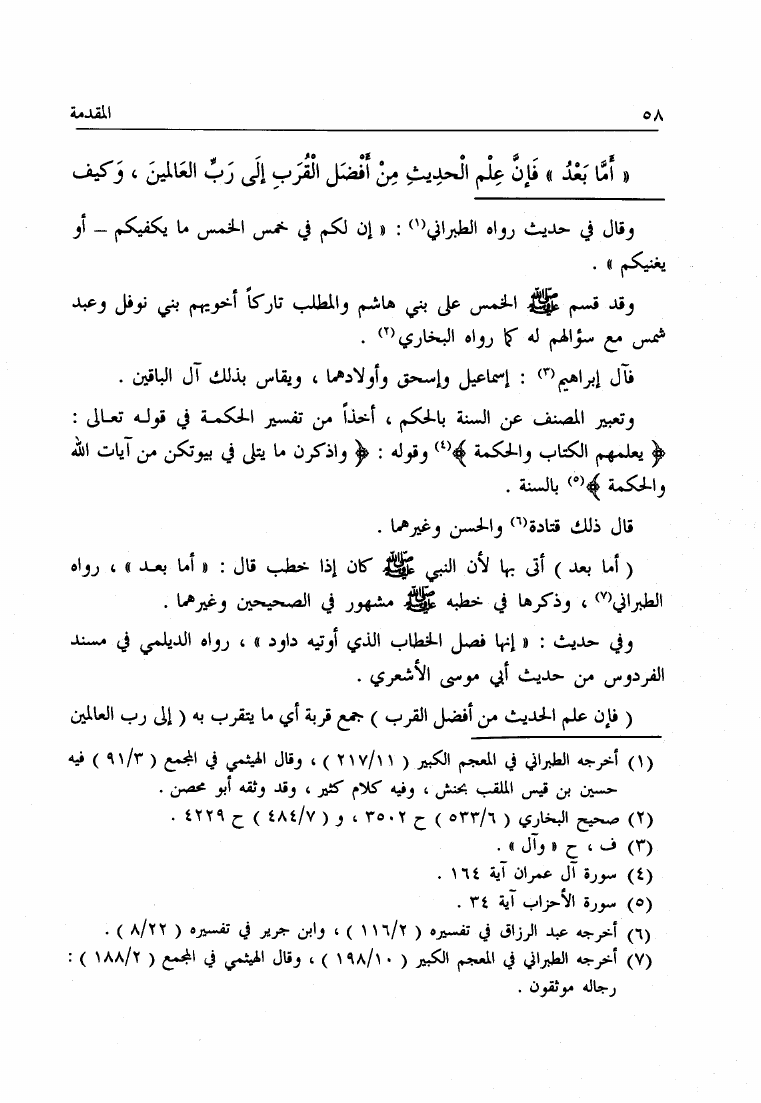 ٥٨ المقدمة
« أَمَّا بَعْدُ » فَإِنَّ عِلْمِ الْحدِيثِ مِنْ أَفْضَل الْقُرَبِ إِلَى رَبِّ العَالمينَ ، وَكيف
وقال في حديث رواه الطبراني(١) : « إن لكم في خمس الخمس ما يكفيكم – أو
يغنيكم » .
وقد قسم ﷺ الخمس على بني هاشم والمطلب تاركاً أخويهم بني نوفل وعبد
شمس مع سؤالهم له كما رواه البخاري(٢) .
فآل إبراهيم(٣) : إسماعيل وإسحق وأولادهما ، ويقاس بذلك آل الباقين .
وتعبير المصنف عن السنة بالحكم ، أخذاً من تفسير الحكمة في قوله تعالى :
﴿ يعلمهم الكتاب والحكمة ﴾(٤) وقوله : ﴿ واذكرن ما يتلى في بيوتكن من آيات الله
والحكمة ﴾(٥) بالسنة .
قال ذلك قتادة(٦) والحسن وغيرهما .
( أما بعد ) أتى بها لأن النبي ﷺ كان إذا خطب قال : « أما بعد » ، رواه
الطبراني(٧) ، وذكرها في خطبه ﷺ مشهور في الصحيحين وغيرهما .
وفي حديث : « إنها فصل الخطاب الذي أوتيه داود » ، رواه الديلمي في مسند
الفردوس من حديث أبي موسى الأشعري .
( فإن علم الحديث من أفضل القرب ) جمع قربة أي ما يتقرب به ( إلى رب العالمين
(١) أخرجه الطبراني في المعجم الكبير ( ٢١٧/١١ ) ، وقال الهيثمي في المجمع ( ٩١/٣ ) فيه
حسين بن قيس الملقب بحنش ، وفيه كلام كثير ، وقد وثقه أبو محصن .
(٢) صحيح البخاري ( ٥٣٣/٦ ) ح ٣٥٠٢ ، و ( ٤٨٤/٧ ) ح ٤٢٢٩ .
(٣) ف ، ح « وآل » .
(٤) سورة آل عمران آية ١٦٤ .
(٥) سورة الأحزاب آية ٣٤ .
(٦) أخرجه عبد الرزاق في تفسيره ( ١١٦/٢ ) ، وابن جرير في تفسيره ( ٨/٢٢ ) .
(٧) أخرجه الطبراني في المعجم الكبير ( ١٩٨/١٠ ) ، وقال الهيثمي في المجمع ( ١٨٨/٢ ) :
رجاله موثقون .